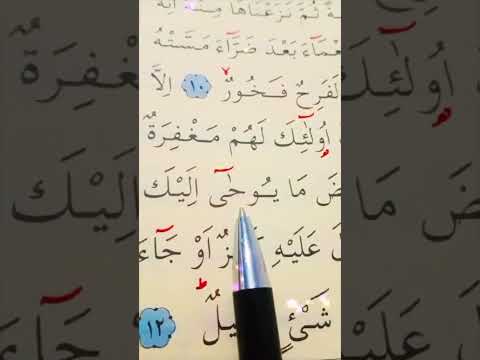 ةً ثُمَّ نَزَعْنَاهَا مِنْهُ اِنَّهُ
عْمَٓاءَ بَعْدَ ضَرَّٓاءَ مَسَّتْهُ
لَفَرِحٌ فَخُورٌ ١٠ اِلَّا
اُو۬لٰٓئِكَ لَهُمْ مَغْفِرَةٌ
ضَ مَا يُوحٰٓى اِلَيْكَ
لَ عَلَيْهِ اَوْ جَٓاءَ
شَيْءٍ ١٢